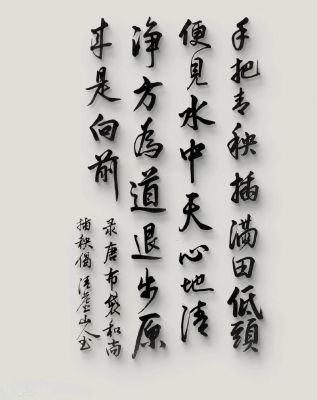 手把青秧插滿田低頭
便見水中天心地清
淨方為道退步原
来是向前
录唐布袋和尚
插秧偈清山人